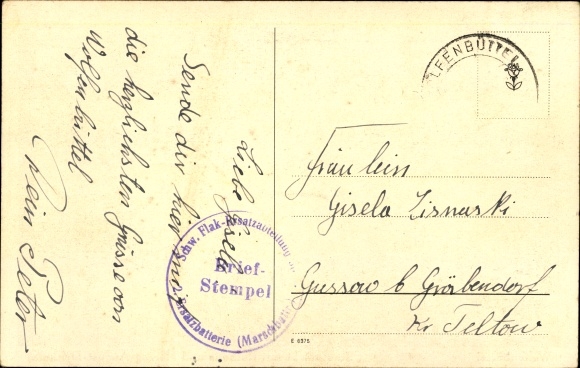 Liebe Gisela
Sende dir hier mit
die herzlichsten Grüsse von
Wolfenbüttel
Dein Peter
LFENBÜTTEL
Fräulein
Gisela Lisnaski
Gussow b Gräbendorf
Kr Teltow
Schw. Flak-Ersatzabteilung
Brief-
Stempel
Ersatzbatterie (Marschbatt.)
E 6375